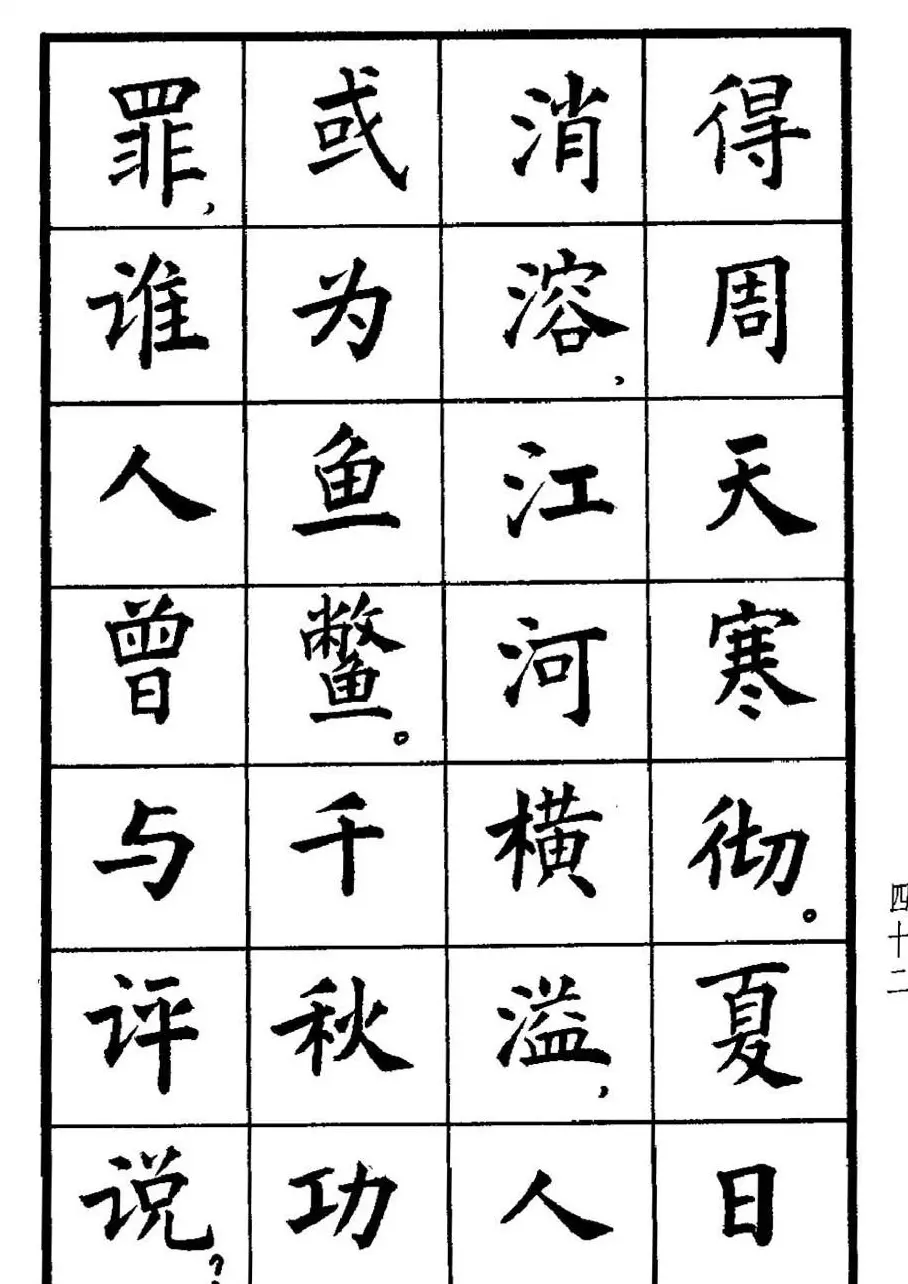 得周天寒彻。夏日
消溶，江河横溢，人
或为鱼鳖。千秋功
罪，谁人曾与评说？
四十二